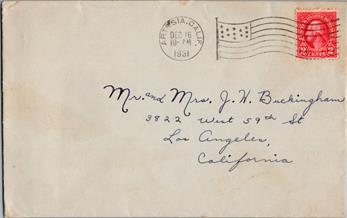 ARTESIA, CALIF.
DEC 16
10-AM
1931
2 CENTS 2
Mr. and Mrs. J. H. Buckingham
3822 West 59th St
Los Angeles,
California